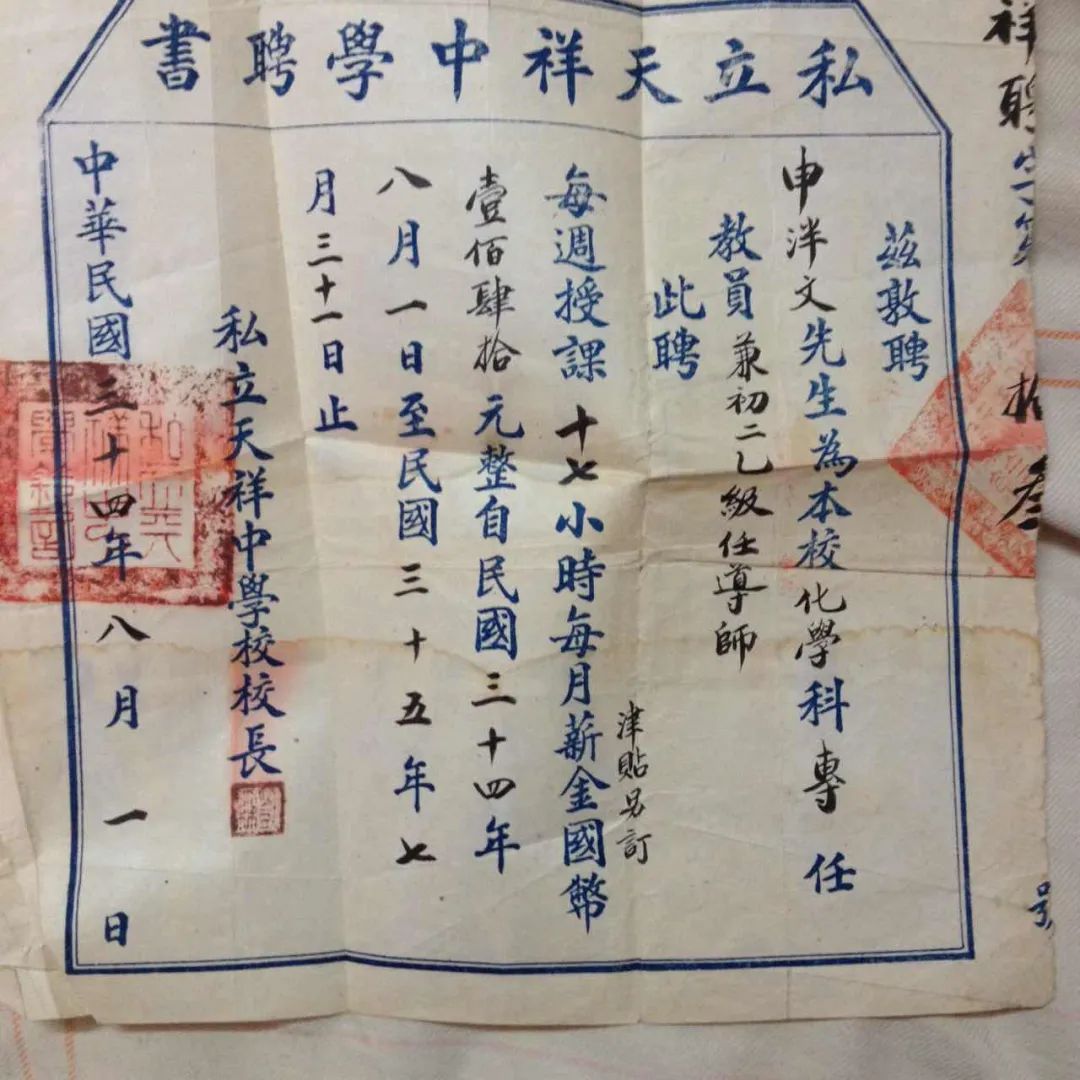 私立天祥中學聘書
祥聘字第 拾叁 號
茲敦聘
申泮文先生為本校化學科專任
教員兼初二乙級任導師
此聘
津貼另訂
每週授課十七小時每月薪金國幣
壹佰肆拾元整自民國三十四年
八月一日至民國三十五年七
月三十一日止
私立天祥中學校校長
中華民國三十四年八月一日